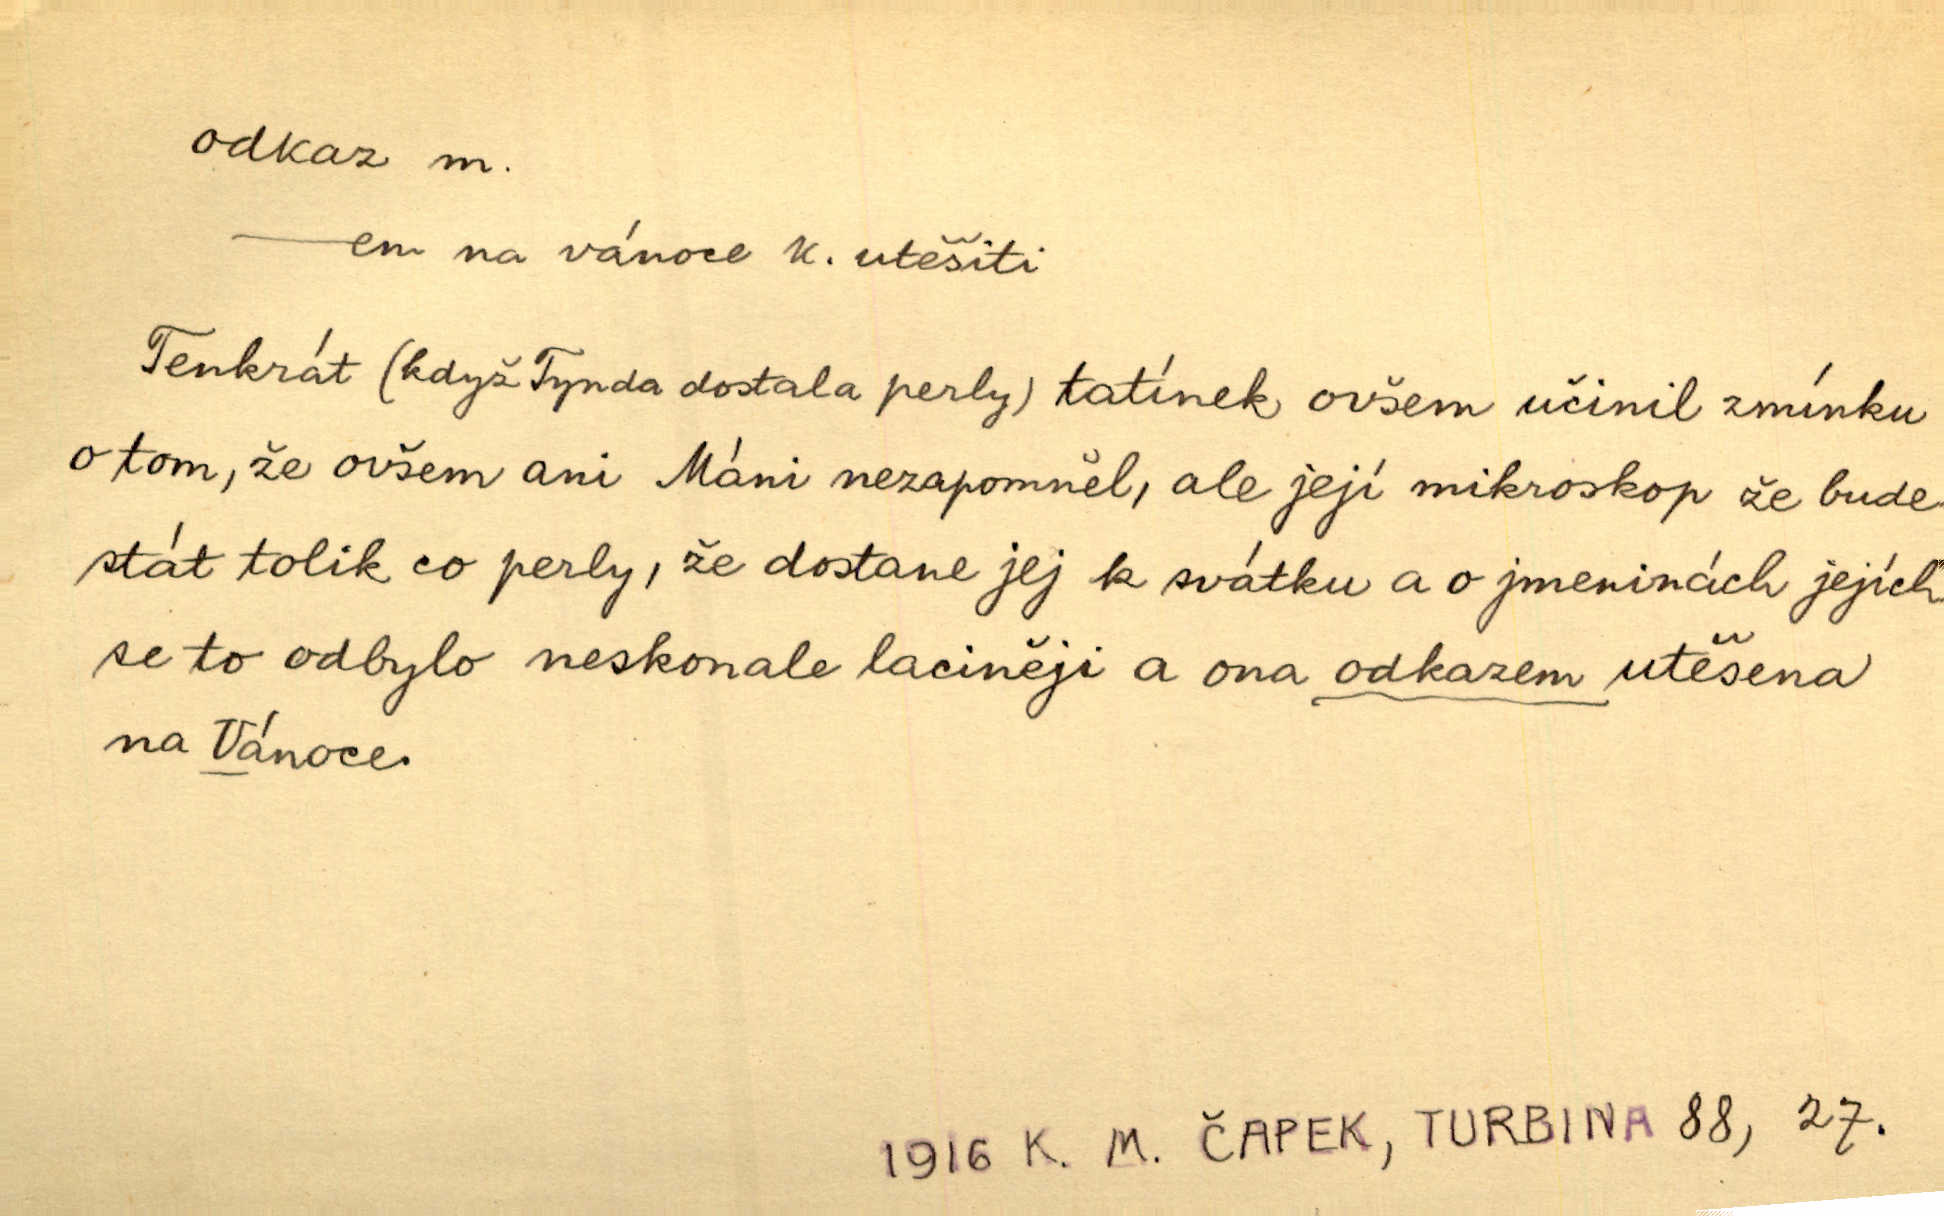 odkaz m.
—em na vánoce k. utěšiti
Tenkrát (když Tynda dostala perly) tatínek ovšem učinil zmínku
o tom, že ovšem ani Máni nezapomněl, ale její mikroskop že bude
stát tolik co perly, že dostane jej k svátku a o jmeninách jejích
se to odbylo neskonale laciněji a ona odkazem utěšena
na Vánoce.
1916 K. M. ČAPEK, TURBINA 88, 27.